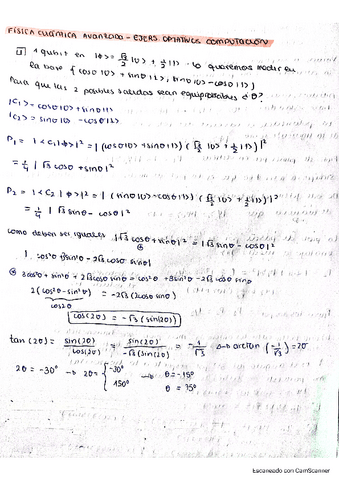 FÍSICA CUÁNTICA AVANZADO - EJERS. OPTATIVOS COMPUTACIÓN
1 1 qubit en |ϕ> = √3/2 |0> + 1/2 |1> queremos medir en
la base {cosθ|0> + sinθ|1>, sinθ|0> - cosθ|1>}
Para que las 2 posibles salidas sean equiprobables ¿θ?
|C₁> = cosθ|0> + sinθ|1>
|C₂> = sinθ|0> - cosθ|1>
P₁ = |<C₁|ϕ>|² = |(cosθ|0> + sinθ|1>)(√3/2 |0> + 1/2 |1>)|²
= 1/4 |√3 cosθ + sinθ|²
P₂ = |<C₂|ϕ>|² = |(sinθ|0> - cosθ|1>)(√3/2 |0> + 1/2 |1>)|²
= 1/4 |√3 sinθ - cosθ|²
como deben ser iguales |√3 cosθ + sinθ|² = |√3 sinθ - cosθ|²
3cos²θ + sin²θ + 2√3 cosθ sinθ = cos²θ + 3sin²θ - 2√3 cosθ sinθ
2(cos²θ - sin²θ) = -2√3 (2cosθ sinθ)
cos2θ
cos(2θ) = -√3 (sin(2θ))
tan(2θ) = sin(2θ)/cos(2θ) = sin(2θ)/-√3(sin(2θ)) = -1/√3 → arctan(-1/√3) = 2θ
2θ = -30° → 2θ = { -30° → θ = -15°
150° θ = 75°
Escaneado con CamScanner